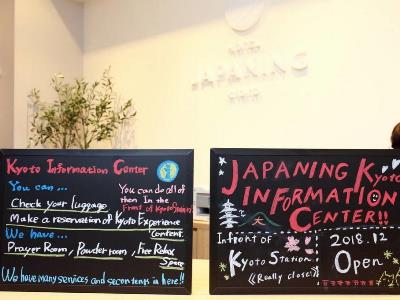 JAPANING
Kyoto Information Center
You can...
You can do all of
them in the
Front of Kyoto Station!!
Check your luggage
Make a reservation of Kyoto Experience
Content
We have...
Prayer Room, Powder room, Free Relax
Space
We have many services and so contents in here!!
JAPANING Kyoto
INFORMATION
CENTER!!
Infront of
Kyoto Station
(Really close!)
2018.12
Open